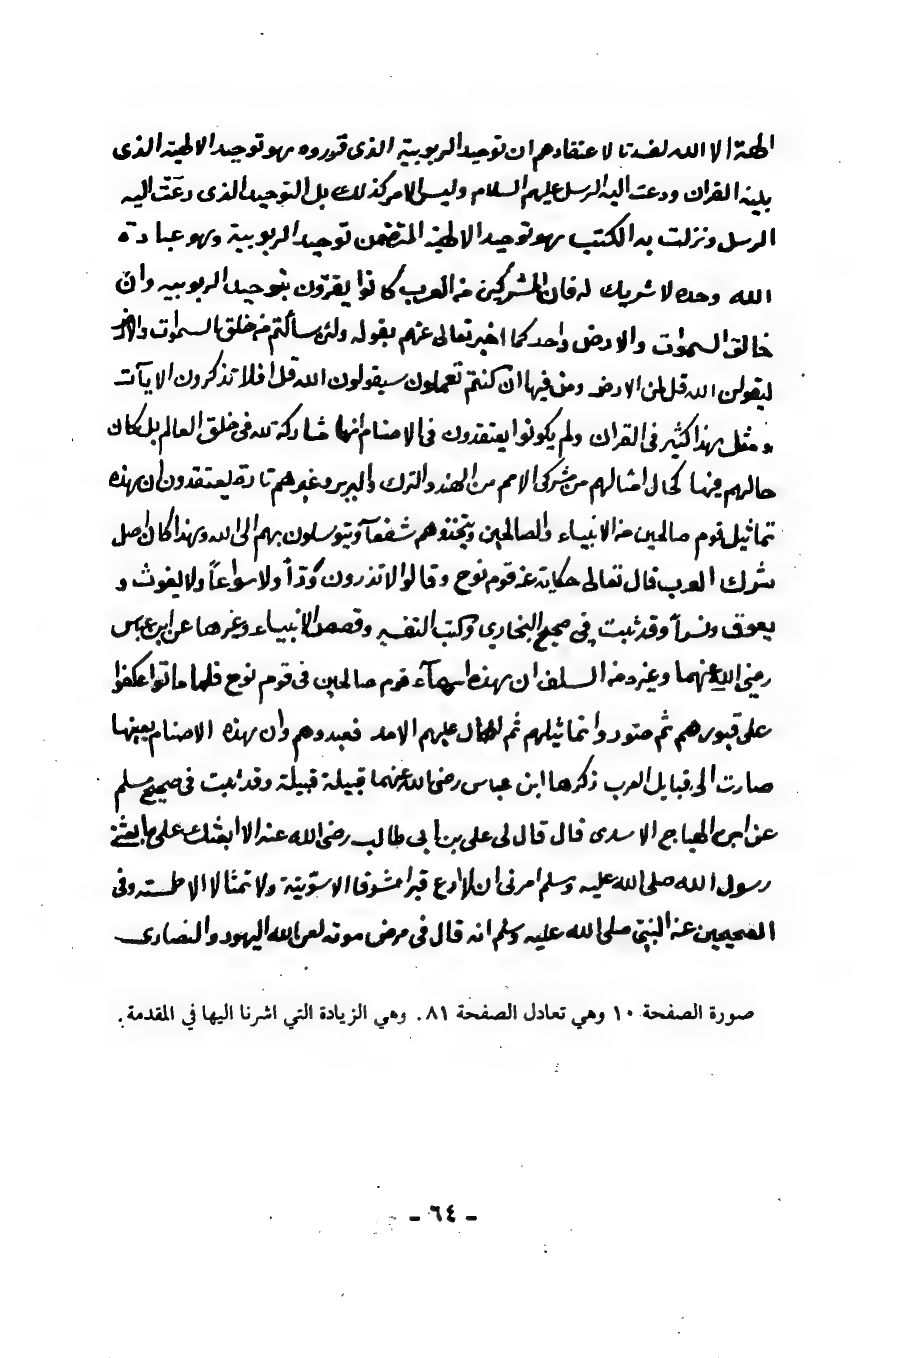 الهة الا الله لفسدتا لاعتقادهم ان توحيد الربوبية الذى قرروه هو توحيد الالهية الذى
بينه القران ودعت اليه الرسل عليهم السلام وليس الامر كذلك بل التوحيد الذى دعت اليه
الرسل ونزلت به الكتب هو توحيد الالهية المتضمن توحيد الربوبية وهو عبادة
الله وحده لا شريك له فان المشركين من العرب كانوا يقرون بتوحيد الربوبيه وان
خالق السموات والارض واحد كما اخبر تعالى عنهم بقوله ولئن سألتهم من خلق السموات والارض
ليقولن الله قل لمن الارض ومن فيها ان كنتم تعملون سيقولون الله قل افلا تذكرون الايآت
ومثل هذا كثير فى القران ولم يكونوا يعتقدون فى الاصنام انها مشاركة لله فى خلق العالم بل كان
حالهم فيها كحال امثالهم من مشركى الامم من الهند والترك والبربر وغيرهم تارة يعتقدون ان هذه
تماثيل قوم صالحين من الانبياء والصالحين ويتخذوهم شفعآ ويتوسلون بهم الى الله وهذا كان اصل
شرك العرب قال تعالى حكاية عن قوم نوح وقالوا لا تذرون ودّاً ولا سواعاً ولا يغوث و
يعوق ونسراً وقد ثبت فى صحيح البخارى وكتب التفسير وقصص الانبياء وغيرها عن ابن عباس
رضى الله عنهما وغيره من السلف ان هذه اسمآء قوم صالحين فى قوم نوح فلما ماتوا عكفوا
على قبورهم ثم صوّروا تماثيلهم ثم طال عليهم الامد فعبدوهم وان هذه الاصنام بعينها
صارت الى قبايل العرب ذكرها ابن عباس رضى الله عنهما قبيلة قبيلة وقد ثبت فى صحيح مسلم
عن ابى الهياج الاسدى قال قال لى على بن ابى طالب رضى الله عنه الا ابعثك على ما بعثنى
رسول الله صلى الله عليه وسلم امرنى ان لا ادع قبرا مشرفا الا سويته ولا تمثالا الا طمسته وفى
الصحيحين عن النبى صلى الله عليه وسلم انه قال فى مرض موته لعن الله اليهود والنصارى
صورة الصفحة ١٠ وهي تعادل الصفحة ٨١. وهي الزيادة التي اشرنا اليها في المقدمة.
- ٦٤ -